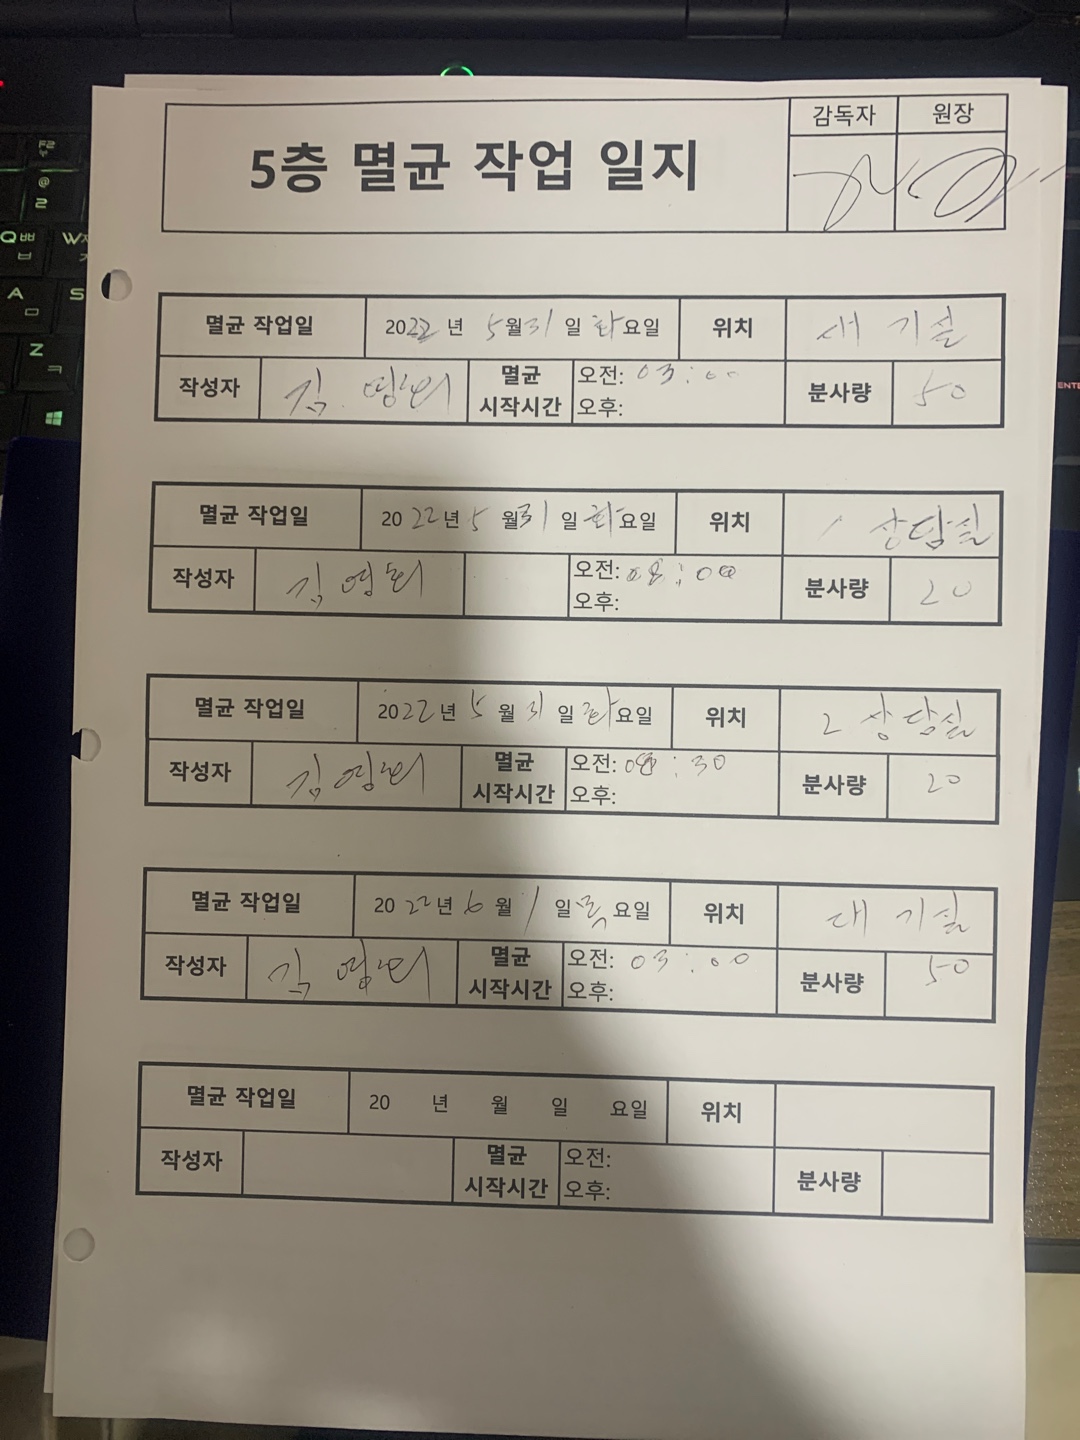 감독자 원장
5층 멸균 작업 일지
멸균 작업일 2022 년 5월 31 일 화요일 위치 기실
작성자 김 영희 멸균 시작시간 오전: 03:00 오후: 분사량 50
멸균 작업일 2022년 5 월 31 일 화요일 위치 1 상담실
작성자 김영희 오전: 08:00 오후: 분사량 20
멸균 작업일 2022년 5 월 31 일 화요일 위치 2 상담실
작성자 김영희 멸균 시작시간 오전: 08:30 오후: 분사량 20
멸균 작업일 2022년 6 월 1 일 요일 위치 대 기실
작성자 김영희 멸균 시작시간 오전: 03:00 오후: 분사량 50
멸균 작업일 20 년 월 일 요일 위치
작성자 멸균 시작시간 오전: 오후: 분사량